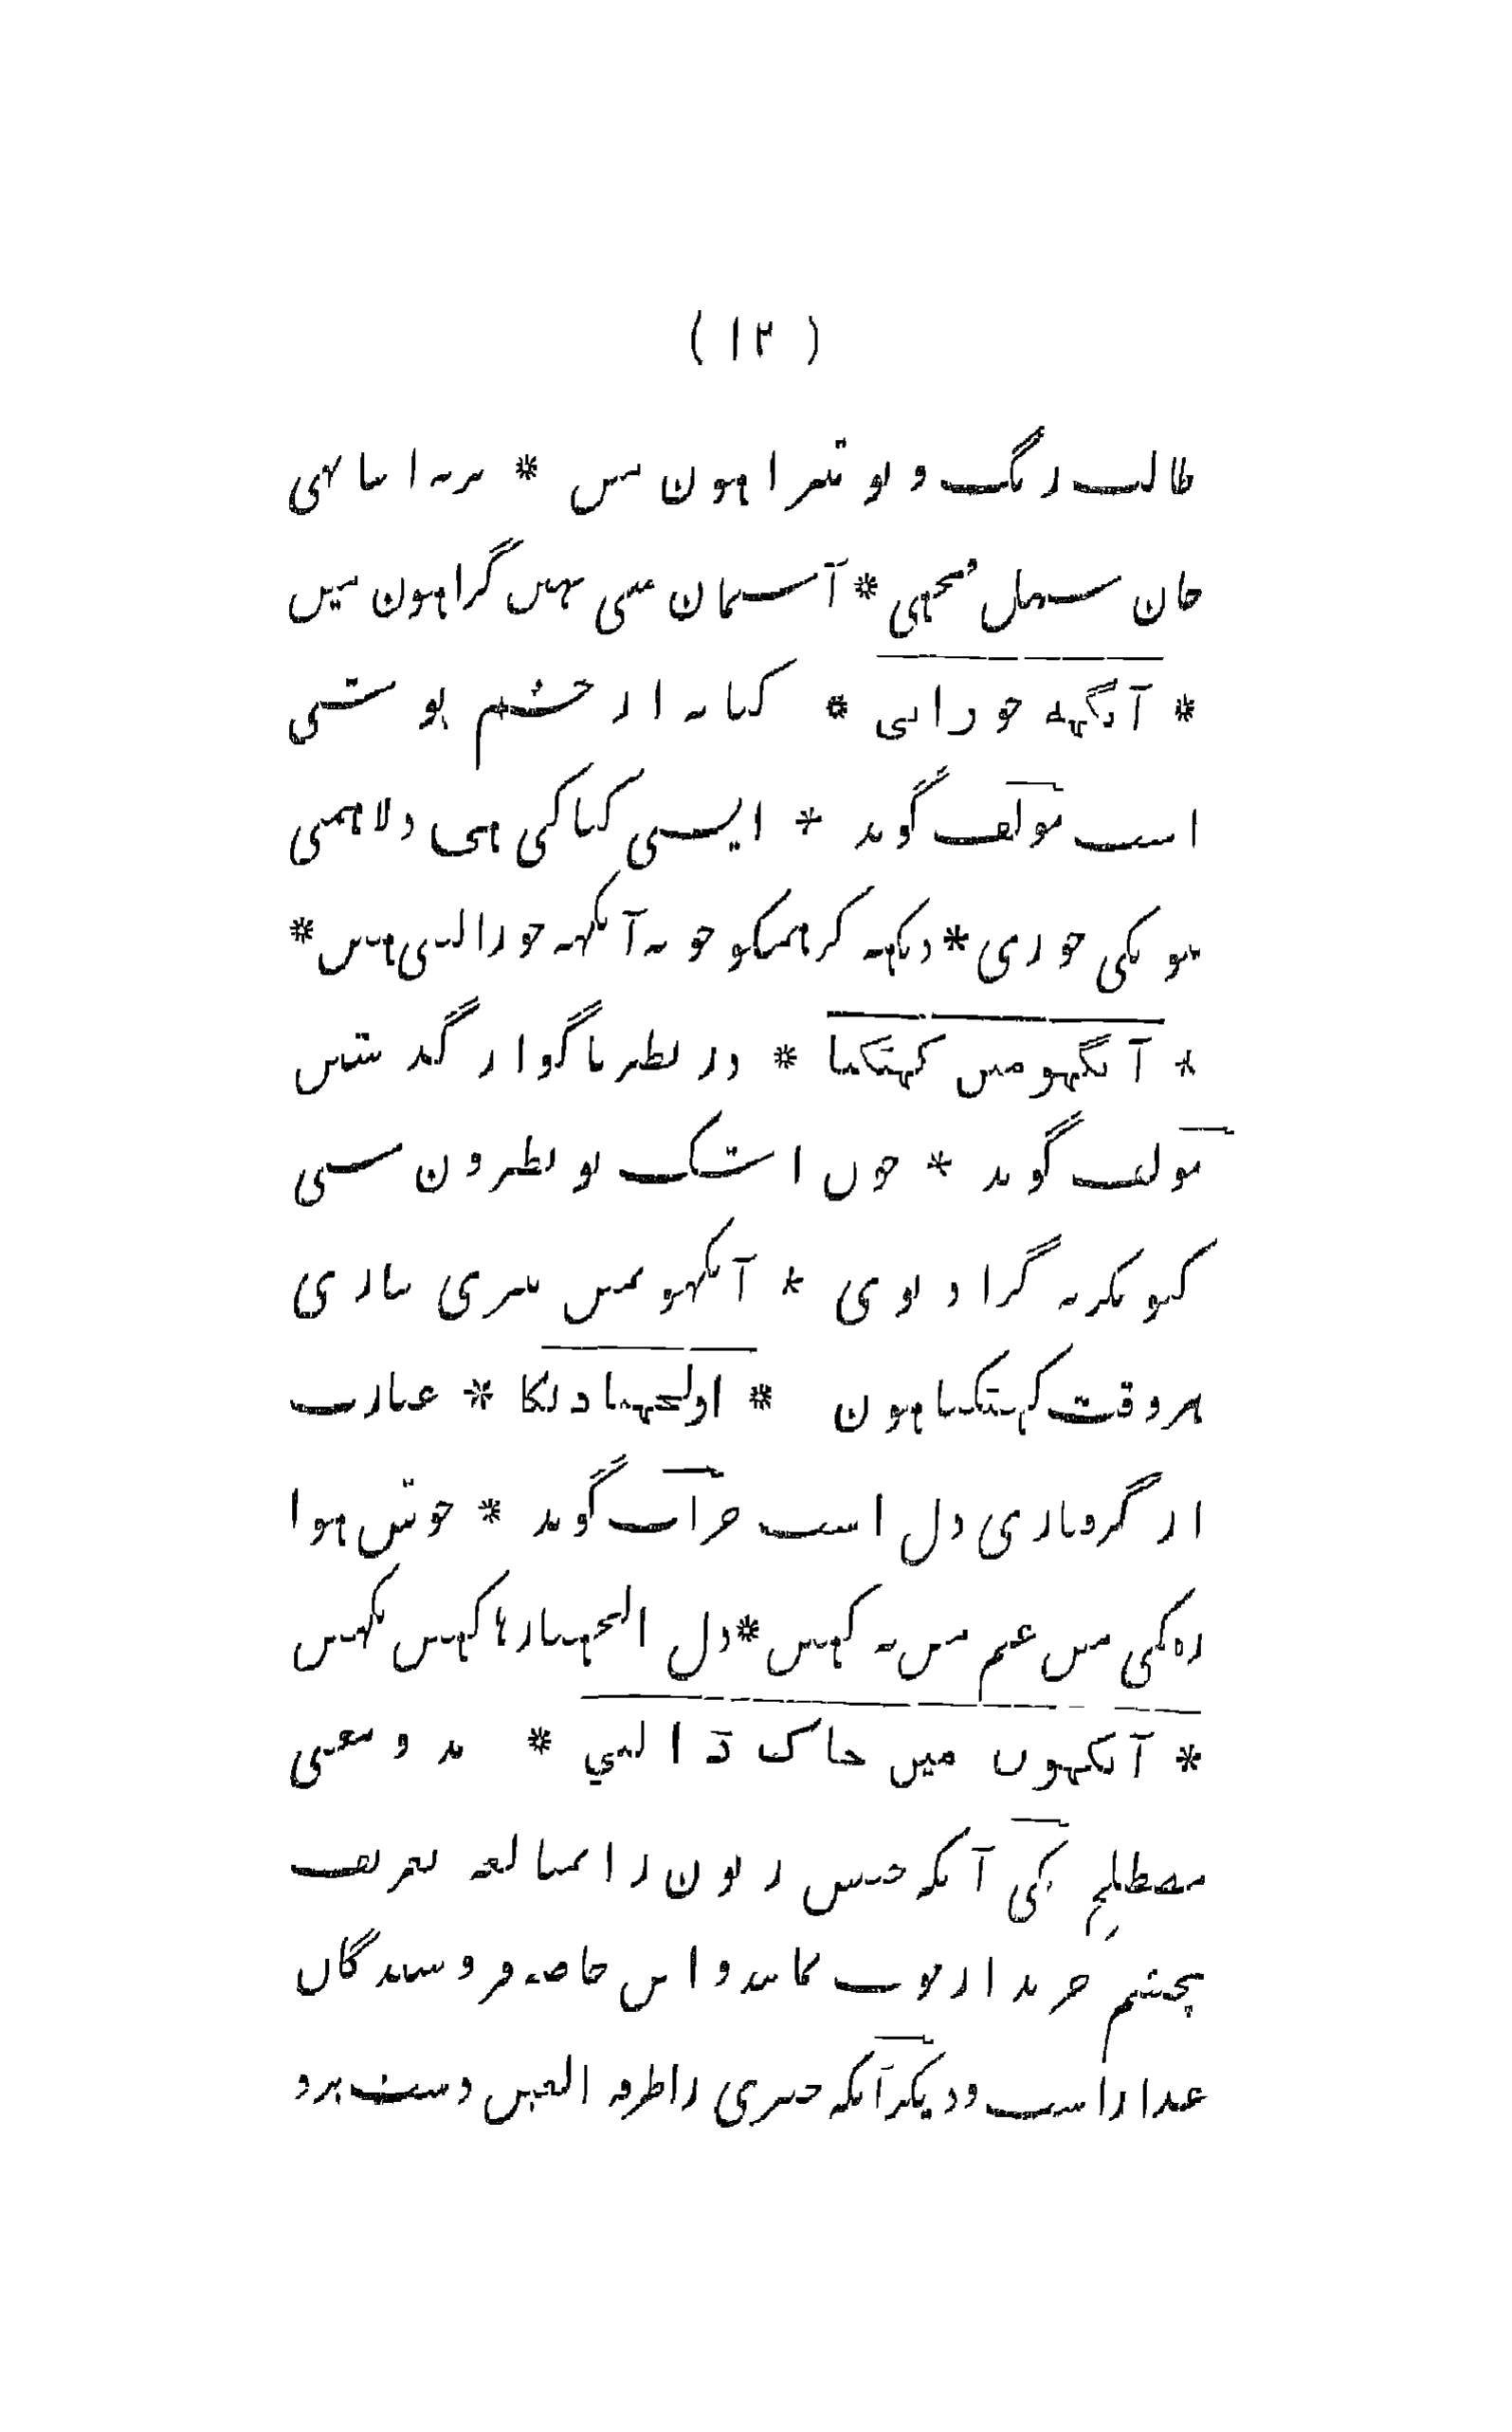 ( ۱۲ )
طالب رنگ و بو تیرا ہون میں * پر نہ اتنا بھی
جان سہل مُجھی * آسمان سی نہیں گرا ہون میں
* آنکھہ چورانی * کنایہ از چشم پوشی
است مؤلف گوید * ایسی کیا کی ہی دلا ہمنی
بتونکی چوری * دیکھہ کر ہمکو جو یہ آنکھہ چورا لیتی ہیں *
* آنکھو میں کھٹکنا * در نظر ناگوار گذشتن
مؤلف گوید * جون اشک تو نظرون سی
کیونکر نہ گرا دیوی * آنکھو نمیں تیری پیاری
ہر وقت کھٹکتا ہون * اولجھنا دلکا * عبارت
از گرفتاری دل است جرأت گوید * خوش ہوا
رہ کی میں غم میں نہ کہیں * دل الجھتا رہا کہیں نکہیں
* آنکھوں میں خاک ڈالنی * بدو معنی
مصطلح یکی آنکہ جنس زبون را بمبالغہ تعریف
بچشم خریدار خوب نمایند و این خاصہ فروشندگان
غدار است و دیگر آنکہ چیزی را طرفۃ العین دست برد